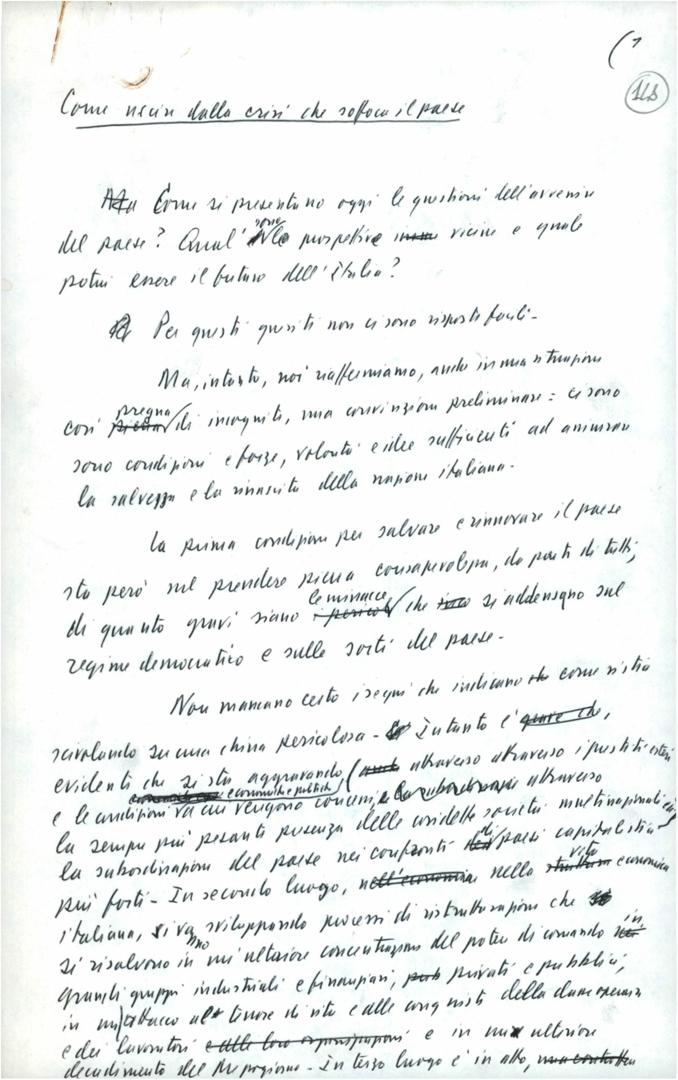 (1
148
Come uscire dalla crisi che soffoca il paese
Come si presentano oggi le questioni dell'avvenire
del paese? Qual' sono le prospettive vicine e quale
potrà essere il futuro dell'Italia?
Per questi quesiti non ci sono risposte facili-
Ma, intanto, noi riaffermiamo, anche in una situazione
così pregna di incognite, una convinzione preliminare: ci sono
sono condizioni e forze, volontà e idee sufficienti ad assicurare
la salvezza e la rinascita della nazione italiana.
La prima condizione per salvare e rinnovare il paese
sta però nel prendere piena consapevolezza, da parte di tutti,
di quanto gravi siano le minacce che si addensano sul
regime democratico e sulle sorti del paese-
Non mancano certo i segni che indicano come si stia
scivolando su una china pericolosa- Intanto è
evidente che si sta aggravando attraverso attraverso i prestiti esteri
e le condizioni economiche e politiche cui vengono concessi, e attraverso
la sempre più pesante presenza delle cosidette società multinazionali
la subordinazione del paese nei confronti dei paesi capitalistici
più forti- In secondo luogo, nella vita economica
italiana, si vanno sviluppando processi di ristrutturazione che
si risolvono in un'ulteriore concentrazione del potere di comando in
grandi gruppi industriali e finanziari, privati e pubblici,
in un attacco al tenore di vita e alle conquiste della classe operaia
e dei lavoratori e in un ulteriore
decadimento del Mezzogiorno- In terzo luogo è in atto,